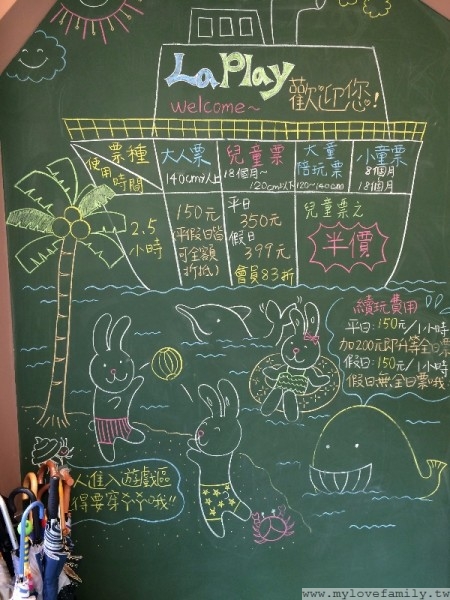 LaPlay
welcome~ 歡迎您!
票種
使用時間
大人票
140cm以上
兒童票
18個月~
120cm以下
大童
陪玩票
120~140cm
小童票
8個月
18個月
2.5
小時
150元
平假日皆
可全額
折抵
平日
350元
假日
399元
會員83折
兒童票之
半價
續玩費用
平日:150元/1小時
加200元即升等全日票
假日:150元/1小時
假日無全日票哦
人進入遊戲區
得要穿ㄚㄚ哦!!
www.mylovefamily.tw